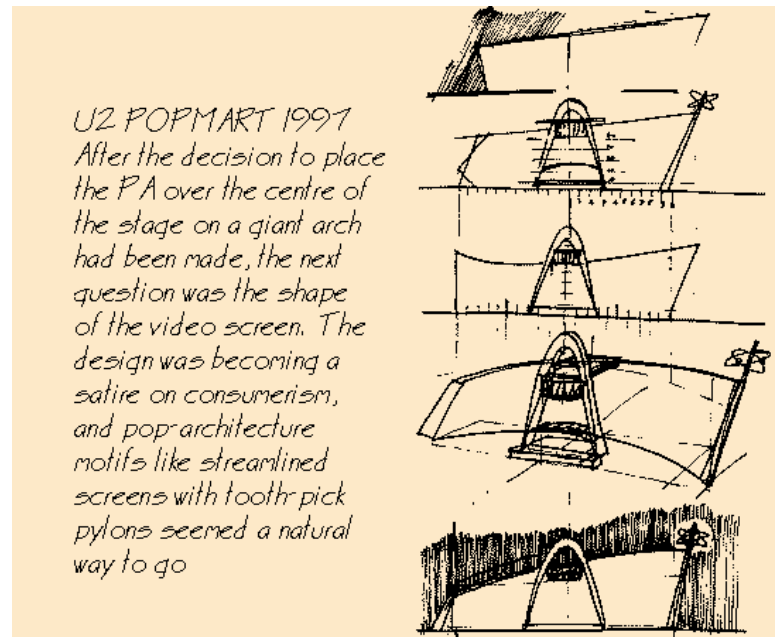 U2 POPMART 1997
After the decision to place
the PA over the centre of
the stage on a giant arch
had been made, the next
question was the shape
of the video screen. The
design was becoming a
satire on consumerism,
and pop-architecture
motifs like streamlined
screens with tooth-pick
pylons seemed a natural
way to go